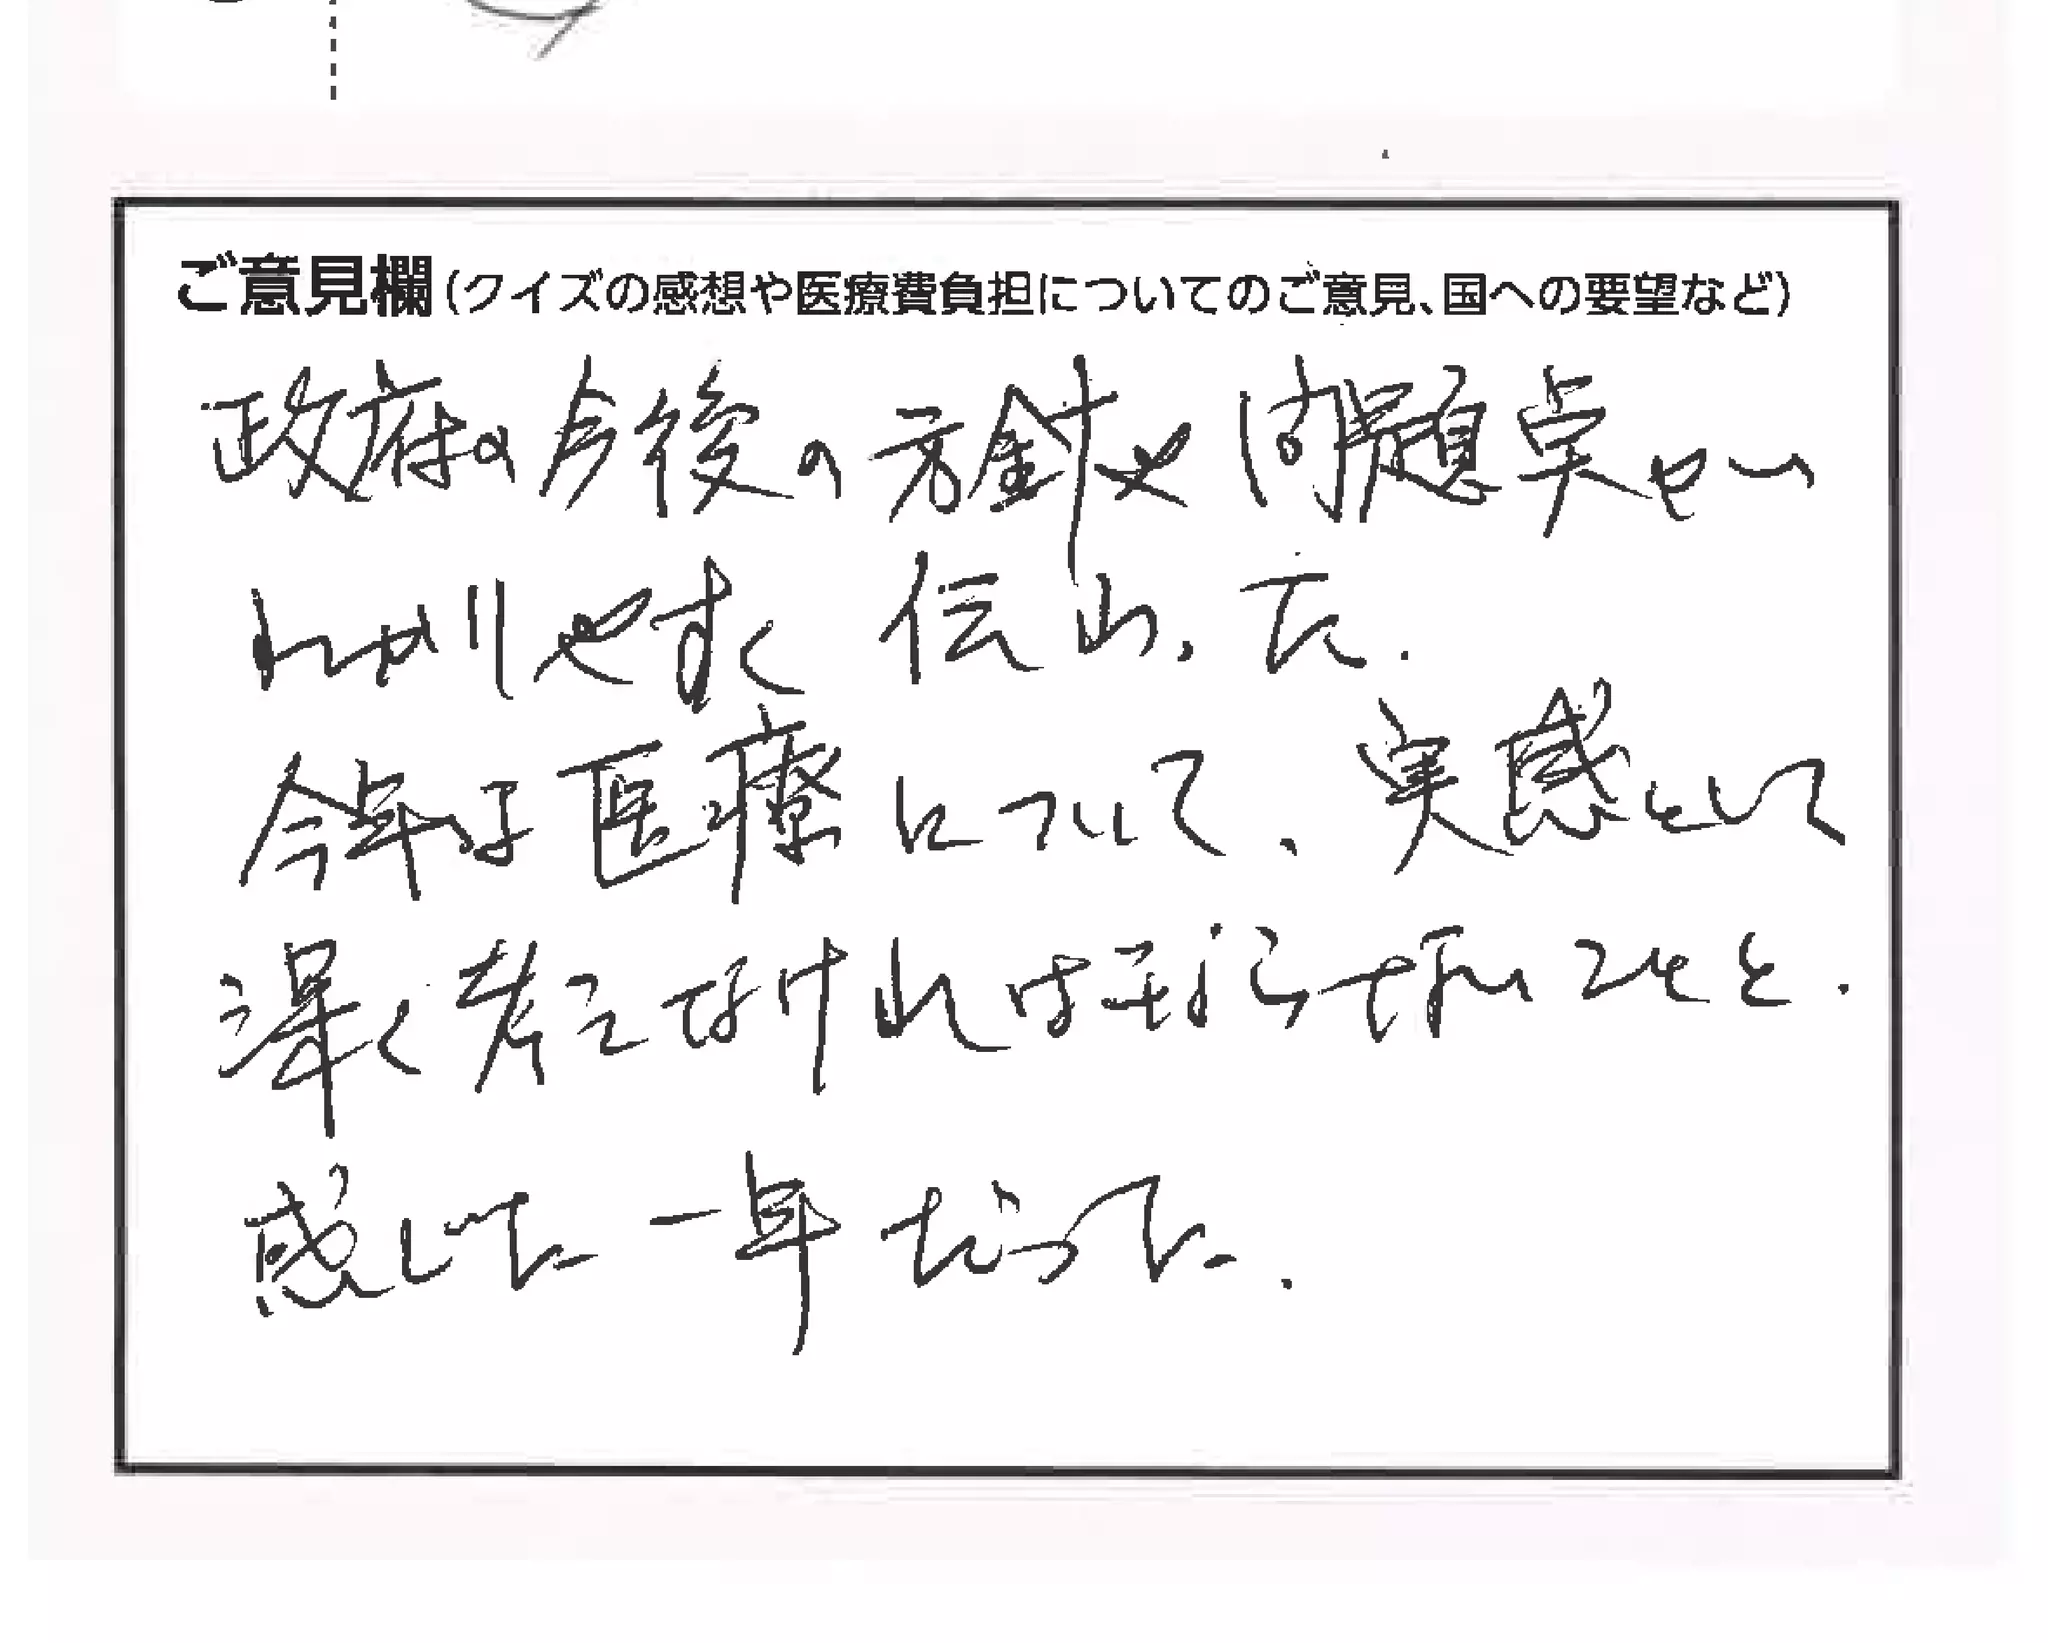 ご意見欄(クイズの感想や医療費負担についてのご意見、国への要望など)
政府の今後の方針や問題点が
わかりやすく伝わった.
今年は医療について、実感として
深く考えなければならないことと.
感じた一年だった.